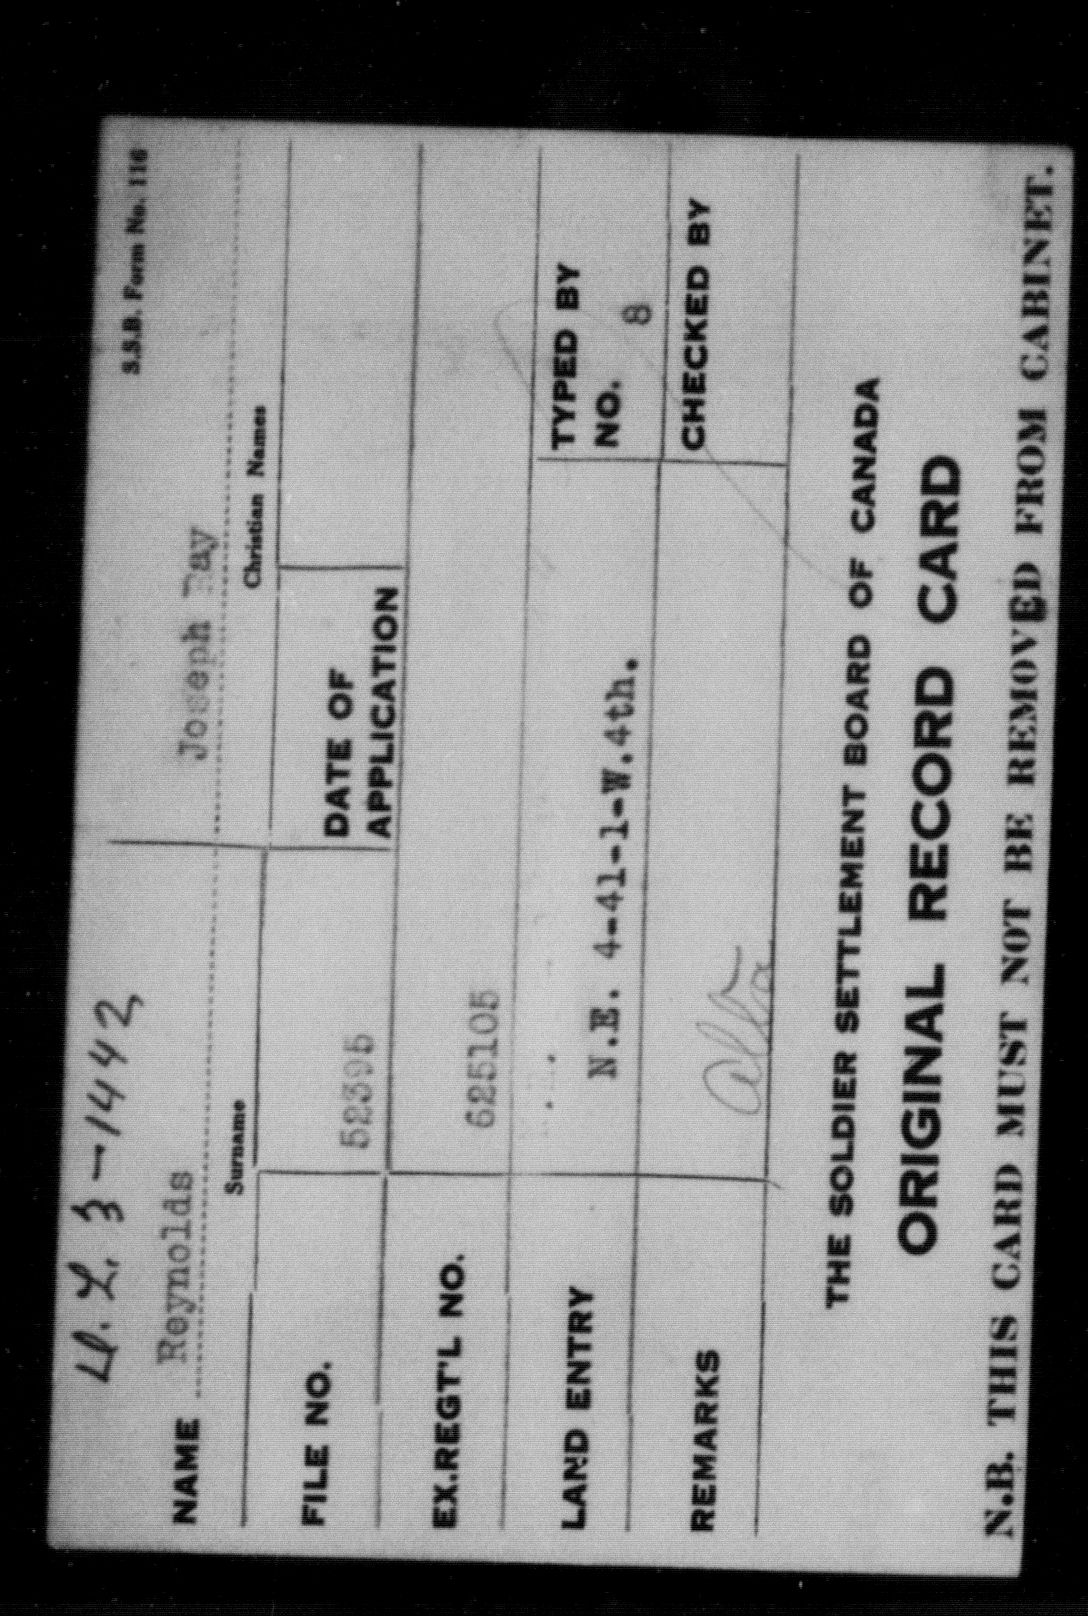 S.S.B. Form No. 116
D. L. 3-1442
NAME Reynolds Joseph Ray
Surname Christian Names
FILE NO. 52395 DATE OF APPLICATION
EX.REGT'L NO. 625105
LAND ENTRY N.E. 4-41-1-W.4th. TYPED BY NO. 8
REMARKS Alta CHECKED BY
THE SOLDIER SETTLEMENT BOARD OF CANADA
ORIGINAL RECORD CARD
N.B. THIS CARD MUST NOT BE REMOVED FROM CABINET.